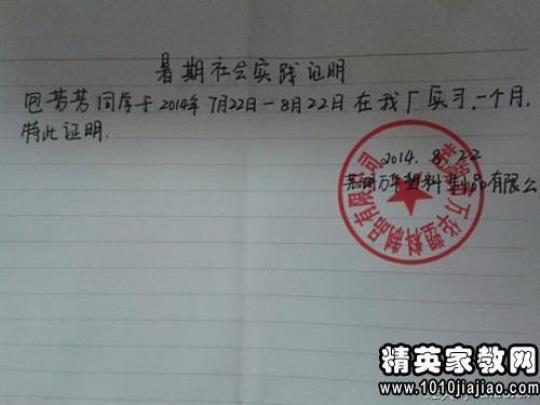 暑期社会实践证明
包芳芳同学于2014年7月22日-8月22日在我厂实习.一个月.
特此证明.
2014.8.22
芜湖万华塑料制品有限公
芜湖万华塑料制品有限公司
精英家教网
www.1010jiajiao.com